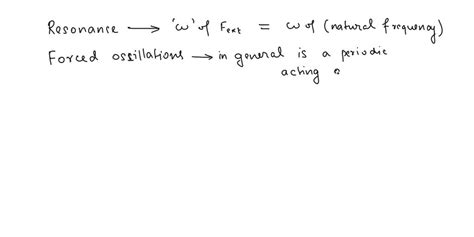 Resonance → 'ω' of Fext = ω of (natural frequency)
Forced ossillations → in general is a periodic
acting